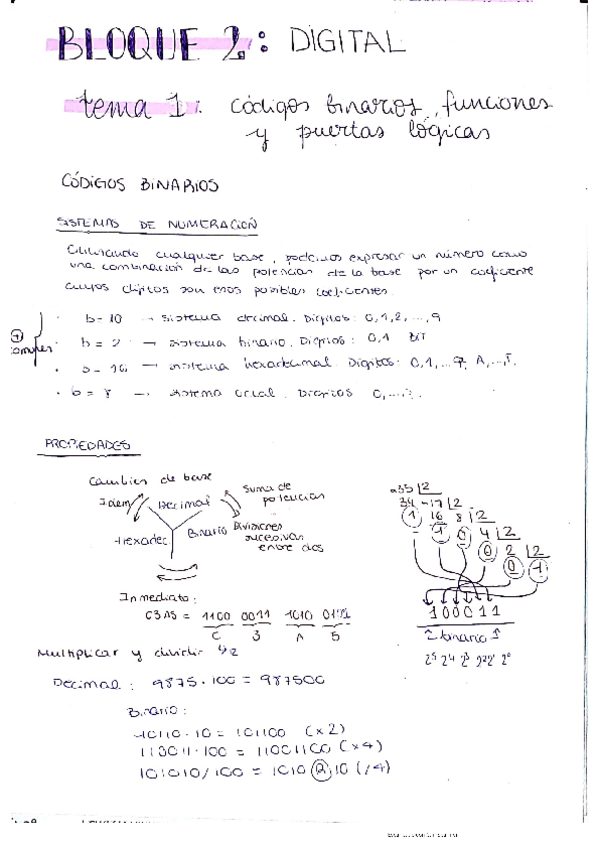 BLOQUE 2: DIGITAL
tema 1: códigos binarios, funciones
y puertas lógicas
CÓDIGOS BINARIOS
SISTEMAS DE NUMERACIÓN
Utilizando cualquier base, podemos expresar un número como
una combinación de las potencias de la base por un coeficiente
cuyos dígitos son esos posibles coeficientes.
b=10 → sistema decimal. Dígitos: 0,1,2,...,9
b=2 → sistema binario. Dígitos: 0,1 BIT
b=16 → sistema hexadecimal. Dígitos: 0,1,...9, A,...F.
b= → sistema octal. Dígitos 0,...
PROPIEDADES
Cambios de base
Idem
Decimal
Suma de
potencias
Hexadec
Binario
Divisiones
sucesivas
entre dos
35 |2
34 17 |2
1 16 8 |2
1 0 4 |2
0 2 |2
0 1
100011
binario
2⁵ 2⁴ 2³ 2² 2¹ 2⁰
Inmediato:
C3A5 = 1100 0011 1010 0101
C 3 A 5
Multiplicar y dividir
Decimal: 9875·100 = 987500
Binario:
10110·10 = 101100 (x2)
110011·100 = 11001100 (x4)
101010/100 = 1010,10 (/4)